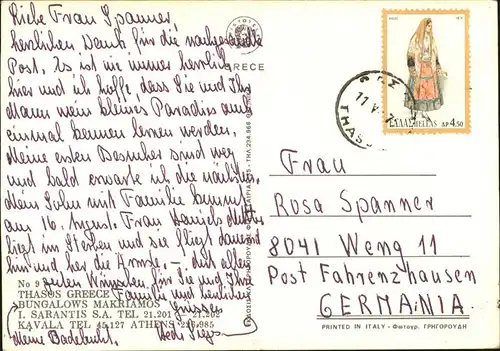 Liebe Frau Spanner,
herzlichen Dank für die nachgesandte
Post. Es ist wie immer herrlich
hier und ich hoffe, dass Sie und Ihr
Mann mein kleines Paradies auch
einmal kennen lernen werden.
Meine ersten Besucher sind weg
und bald erwarte ich die nächsten.
Mein Sohn mit Familie kommt
am 16. August. Frau
liegt im Sterben und sie fliegt dauernd
hin und her, die Arme, – Ihnen alles
guten Wünschen für Sie und Ihre
Familie und herzlichen
Grüssen
Ihre
deine Badebucht.
No 9
THASOS GREECE
BUNGALOWS MAKRIAMOS
I. SARANTIS S.A. TEL 21.201 - 21.202
KAVALA TEL 45.127 ATHENS
GREECE
THASOS
11 V
ΕΛΛΑΣ HELLAS ΔΡ 4,50
Frau
Rosa Spanner
8041 Weng 11
Post Fahrenzhausen
GERMANIA
PRINTED IN ITALY - Φωτογρ. ΓΡΗΓΟΡΟΥΔΗ